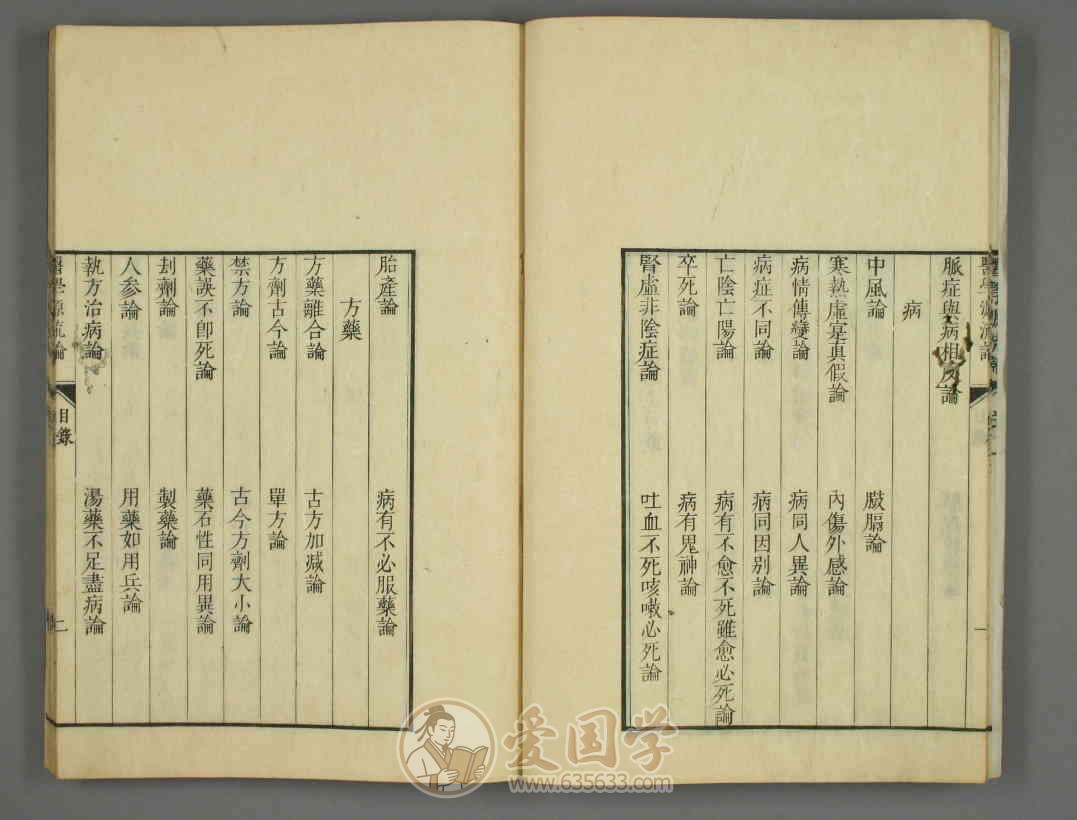 醫學源流論
脈症與病相反論
病
中風論 臌膈論
寒熱虛實真假論 內傷外感論
病情傳變論 病同人異論
病症不同論 病同因别論
亡陰亡陽論 病有不愈不死雖愈必死論
卒死論 病有鬼神論
腎虛非陰症論 吐血不死咳嗽必死論
一
胎產論 病有不必服藥論
方藥
方藥離合論 古方加減論
方劑古今論 單方論
禁方論 古今方劑大小論
藥誤不卽死論 藥石性同用異論
刦劑論 製藥論
人参論 用藥如用兵論
執方治病論 湯藥不足盡病論
醫學源流論 目錄 二
爱国学
www.635633.com